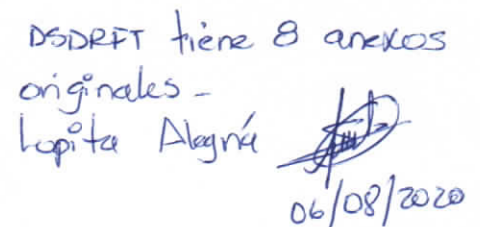 DSDRFT tiene 8 anexos
originales -
Lopita Alegría
06/08/2020